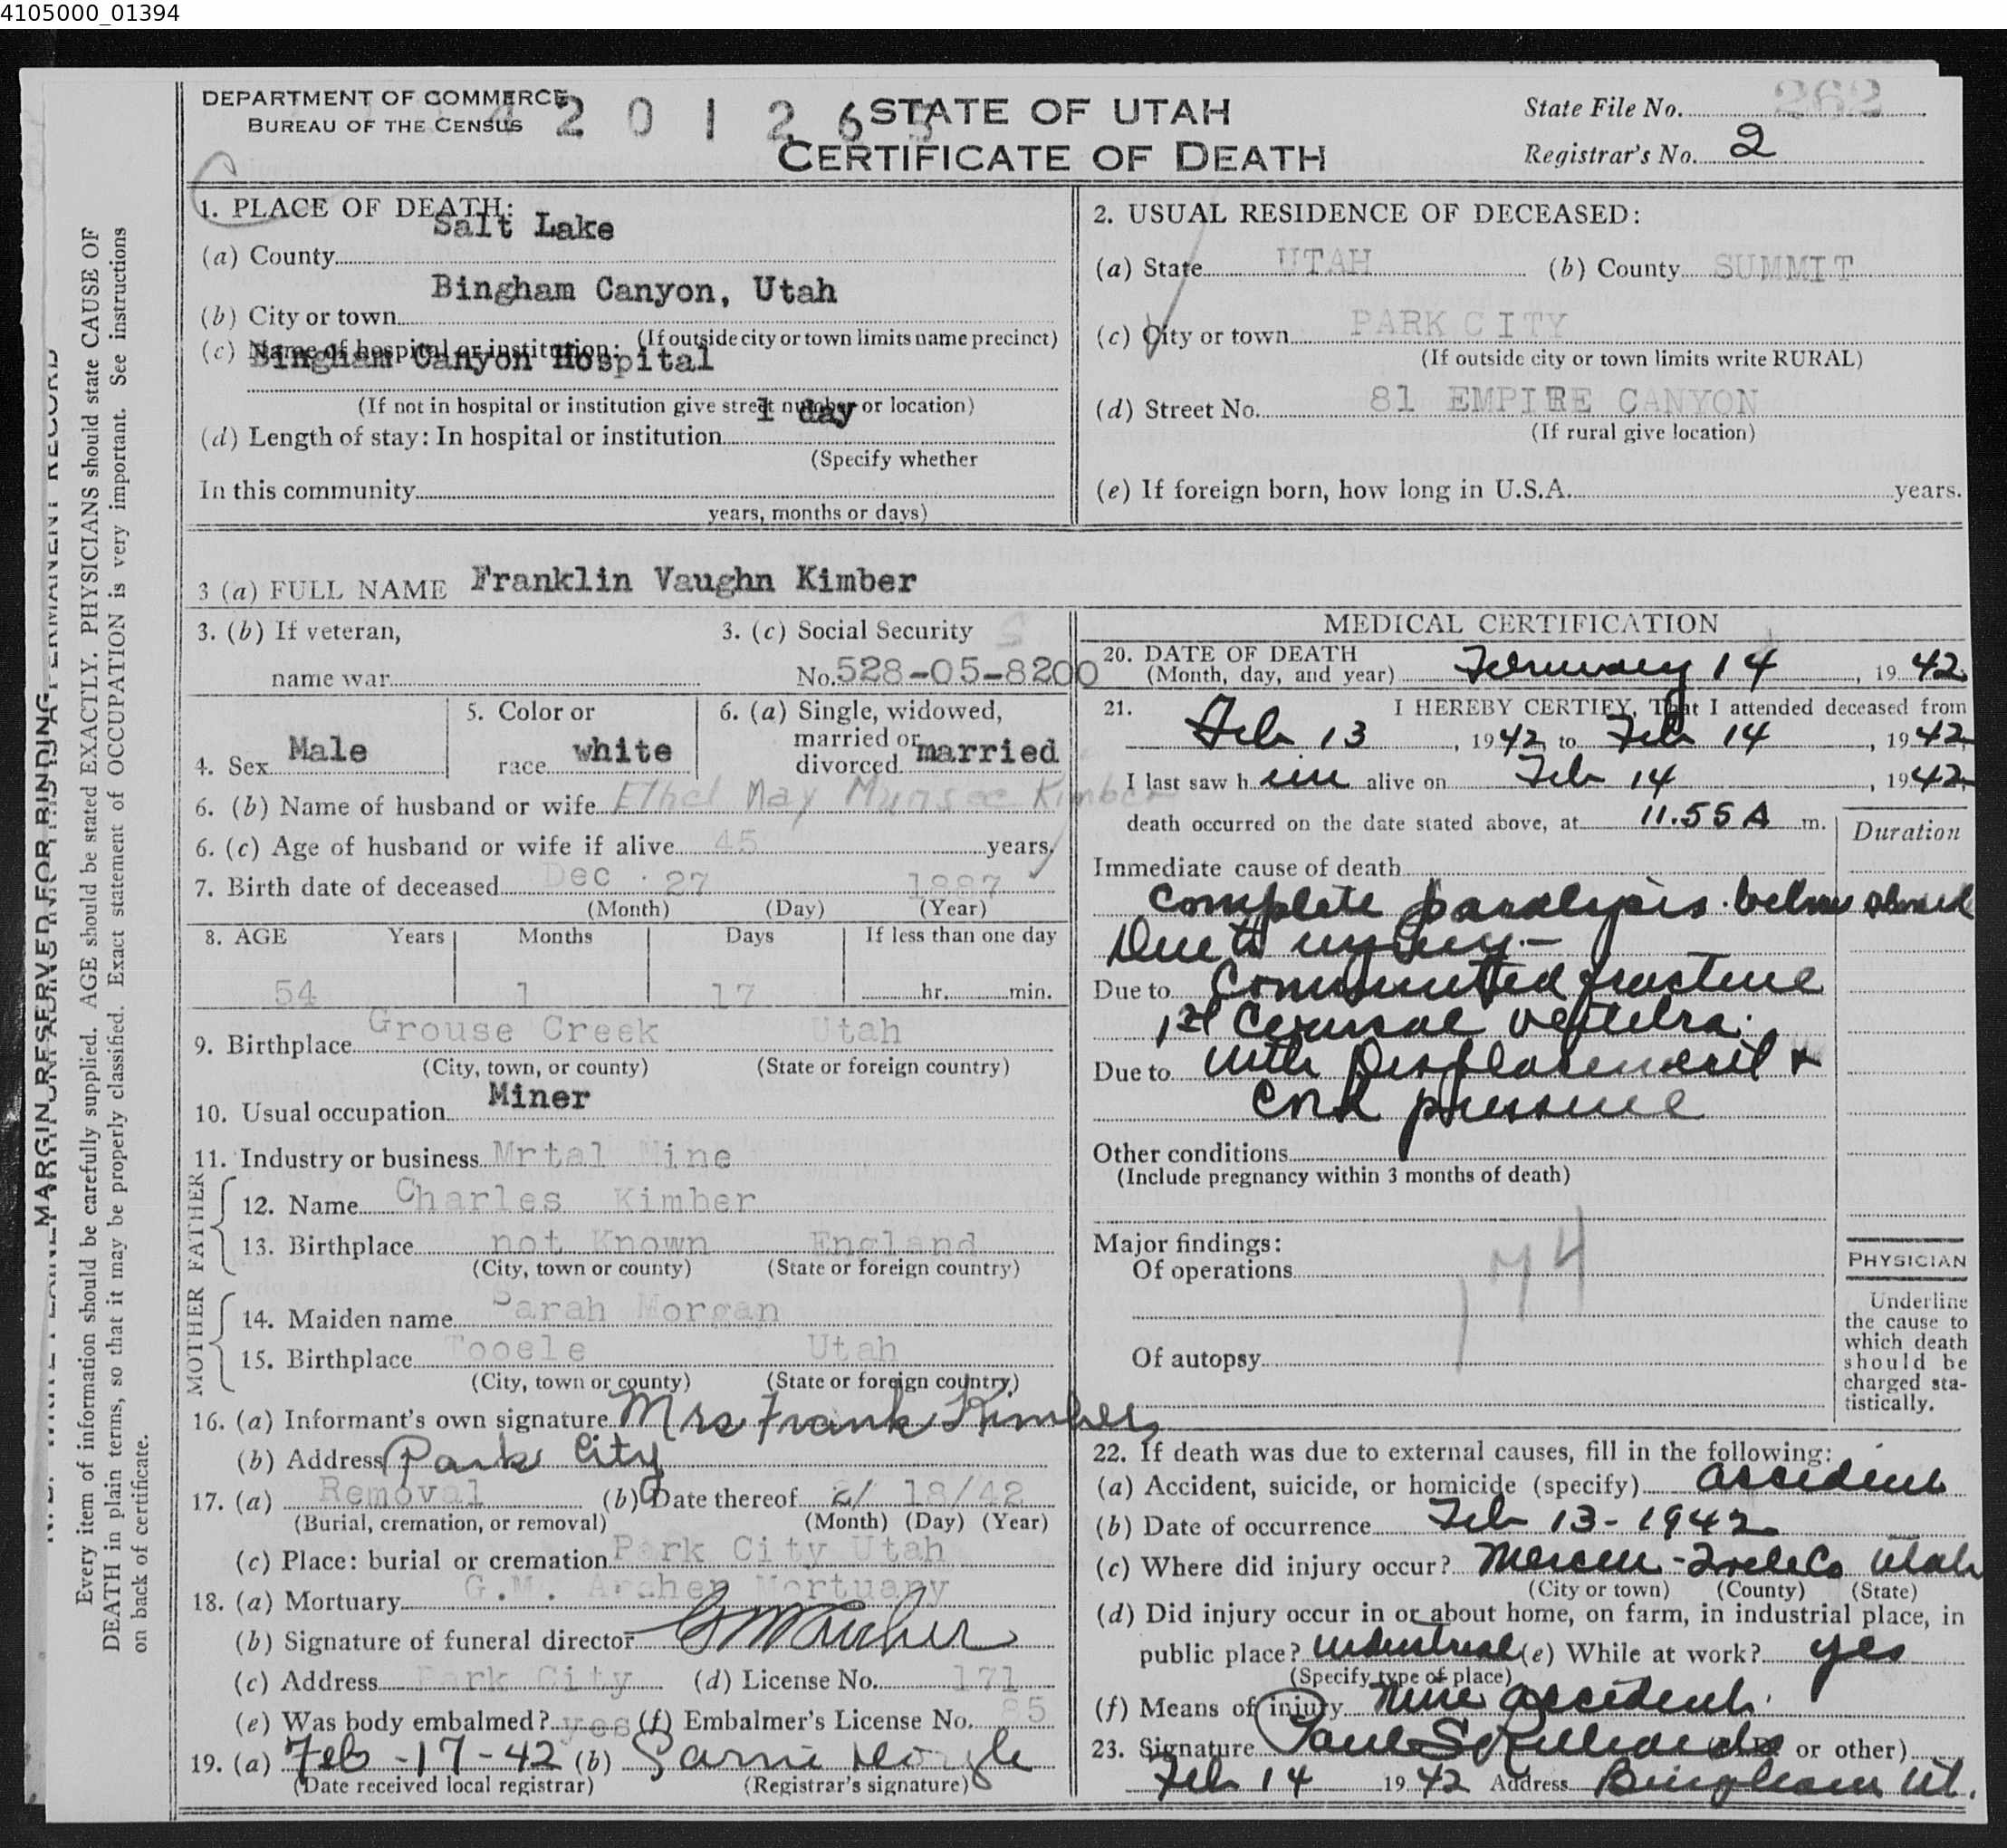 4105000_01394
DEPARTMENT OF COMMERCE
BUREAU OF THE CENSUS
4201265
STATE OF UTAH
CERTIFICATE OF DEATH
State File No. 262
Registrar's No. 2
MARGIN RESERVED FOR BINDING
Every item of information should be carefully supplied. AGE should be stated EXACTLY. PHYSICIANS should state CAUSE OF
DEATH in plain terms, so that it may be properly classified. Exact statement of OCCUPATION is very important. See instructions
on back of certificate.
1. PLACE OF DEATH:
(a) County Salt Lake
(b) City or town Bingham Canyon, Utah
(If outside city or town limits name precinct)
(c) Name of hospital or institution: Bingham Canyon Hospital
(If not in hospital or institution give street number or location)
(d) Length of stay: In hospital or institution 1 day
(Specify whether
In this community
years, months or days)
2. USUAL RESIDENCE OF DECEASED:
(a) State UTAH (b) County SUMMIT
(c) City or town PARK CITY
(If outside city or town limits write RURAL)
(d) Street No. 81 EMPIRE CANYON
(If rural give location)
(e) If foreign born, how long in U.S.A. years.
3 (a) FULL NAME Franklin Vaughn Kimber
3. (b) If veteran,
name war
3. (c) Social Security
No. 528-05-8200
4. Sex Male
5. Color or
race white
6. (a) Single, widowed,
married or
divorced married
6. (b) Name of husband or wife Ethel May Munsee Kimber
6. (c) Age of husband or wife if alive 45 years.
7. Birth date of deceased Dec 27 1887
(Month) (Day) (Year)
8. AGE Years Months Days If less than one day
54 1 17 hr. min.
9. Birthplace Grouse Creek Utah
(City, town, or county) (State or foreign country)
10. Usual occupation Miner
11. Industry or business Mrtal Mine
FATHER
12. Name Charles Kimber
13. Birthplace not Known England
(City, town or county) (State or foreign country)
MOTHER
14. Maiden name Sarah Morgan
15. Birthplace Tooele Utah
(City, town or county) (State or foreign country)
16. (a) Informant's own signature Mrs Frank Kimber
(b) Address Park City
17. (a) Removal (b) Date thereof 2/ 18/42
(Burial, cremation, or removal) (Month) (Day) (Year)
(c) Place: burial or cremation Park City Utah
18. (a) Mortuary G.M. Archer Mortuary
(b) Signature of funeral director GM Archer
(c) Address Park City (d) License No. 171
(e) Was body embalmed? yes (f) Embalmer's License No. 85
19. (a) Feb-17-42 (b)
(Date received local registrar) (Registrar's signature)
MEDICAL CERTIFICATION
20. DATE OF DEATH
(Month, day, and year) February 14, 1942
21. I HEREBY CERTIFY, That I attended deceased from
Feb 13, 1942, to Feb 14, 1942
I last saw him alive on Feb 14, 1942,
death occurred on the date stated above, at 11.55 A m.
Duration
Immediate cause of death
Complete paralysis below
Due to injury.-
Due to Comminuted fracture
1st Cervical vertebra.
Due to with Displacement &
Cord pressure
Other conditions
(Include pregnancy within 3 months of death)
Major findings:
Of operations
174
Of autopsy
PHYSICIAN
Underline
the cause to
which death
should be
charged sta-
tistically.
22. If death was due to external causes, fill in the following:
(a) Accident, suicide, or homicide (specify) accident
(b) Date of occurrence Feb 13-1942
(c) Where did injury occur? Mercur - Tooele Co Utah
(City or town) (County) (State)
(d) Did injury occur in or about home, on farm, in industrial place, in
public place? industrial (e) While at work? yes
(Specify type of place)
(f) Means of injury Mine accident.
23. Signature Paul S Richards or other)
Feb 14 1942 Address Bingham Ut.